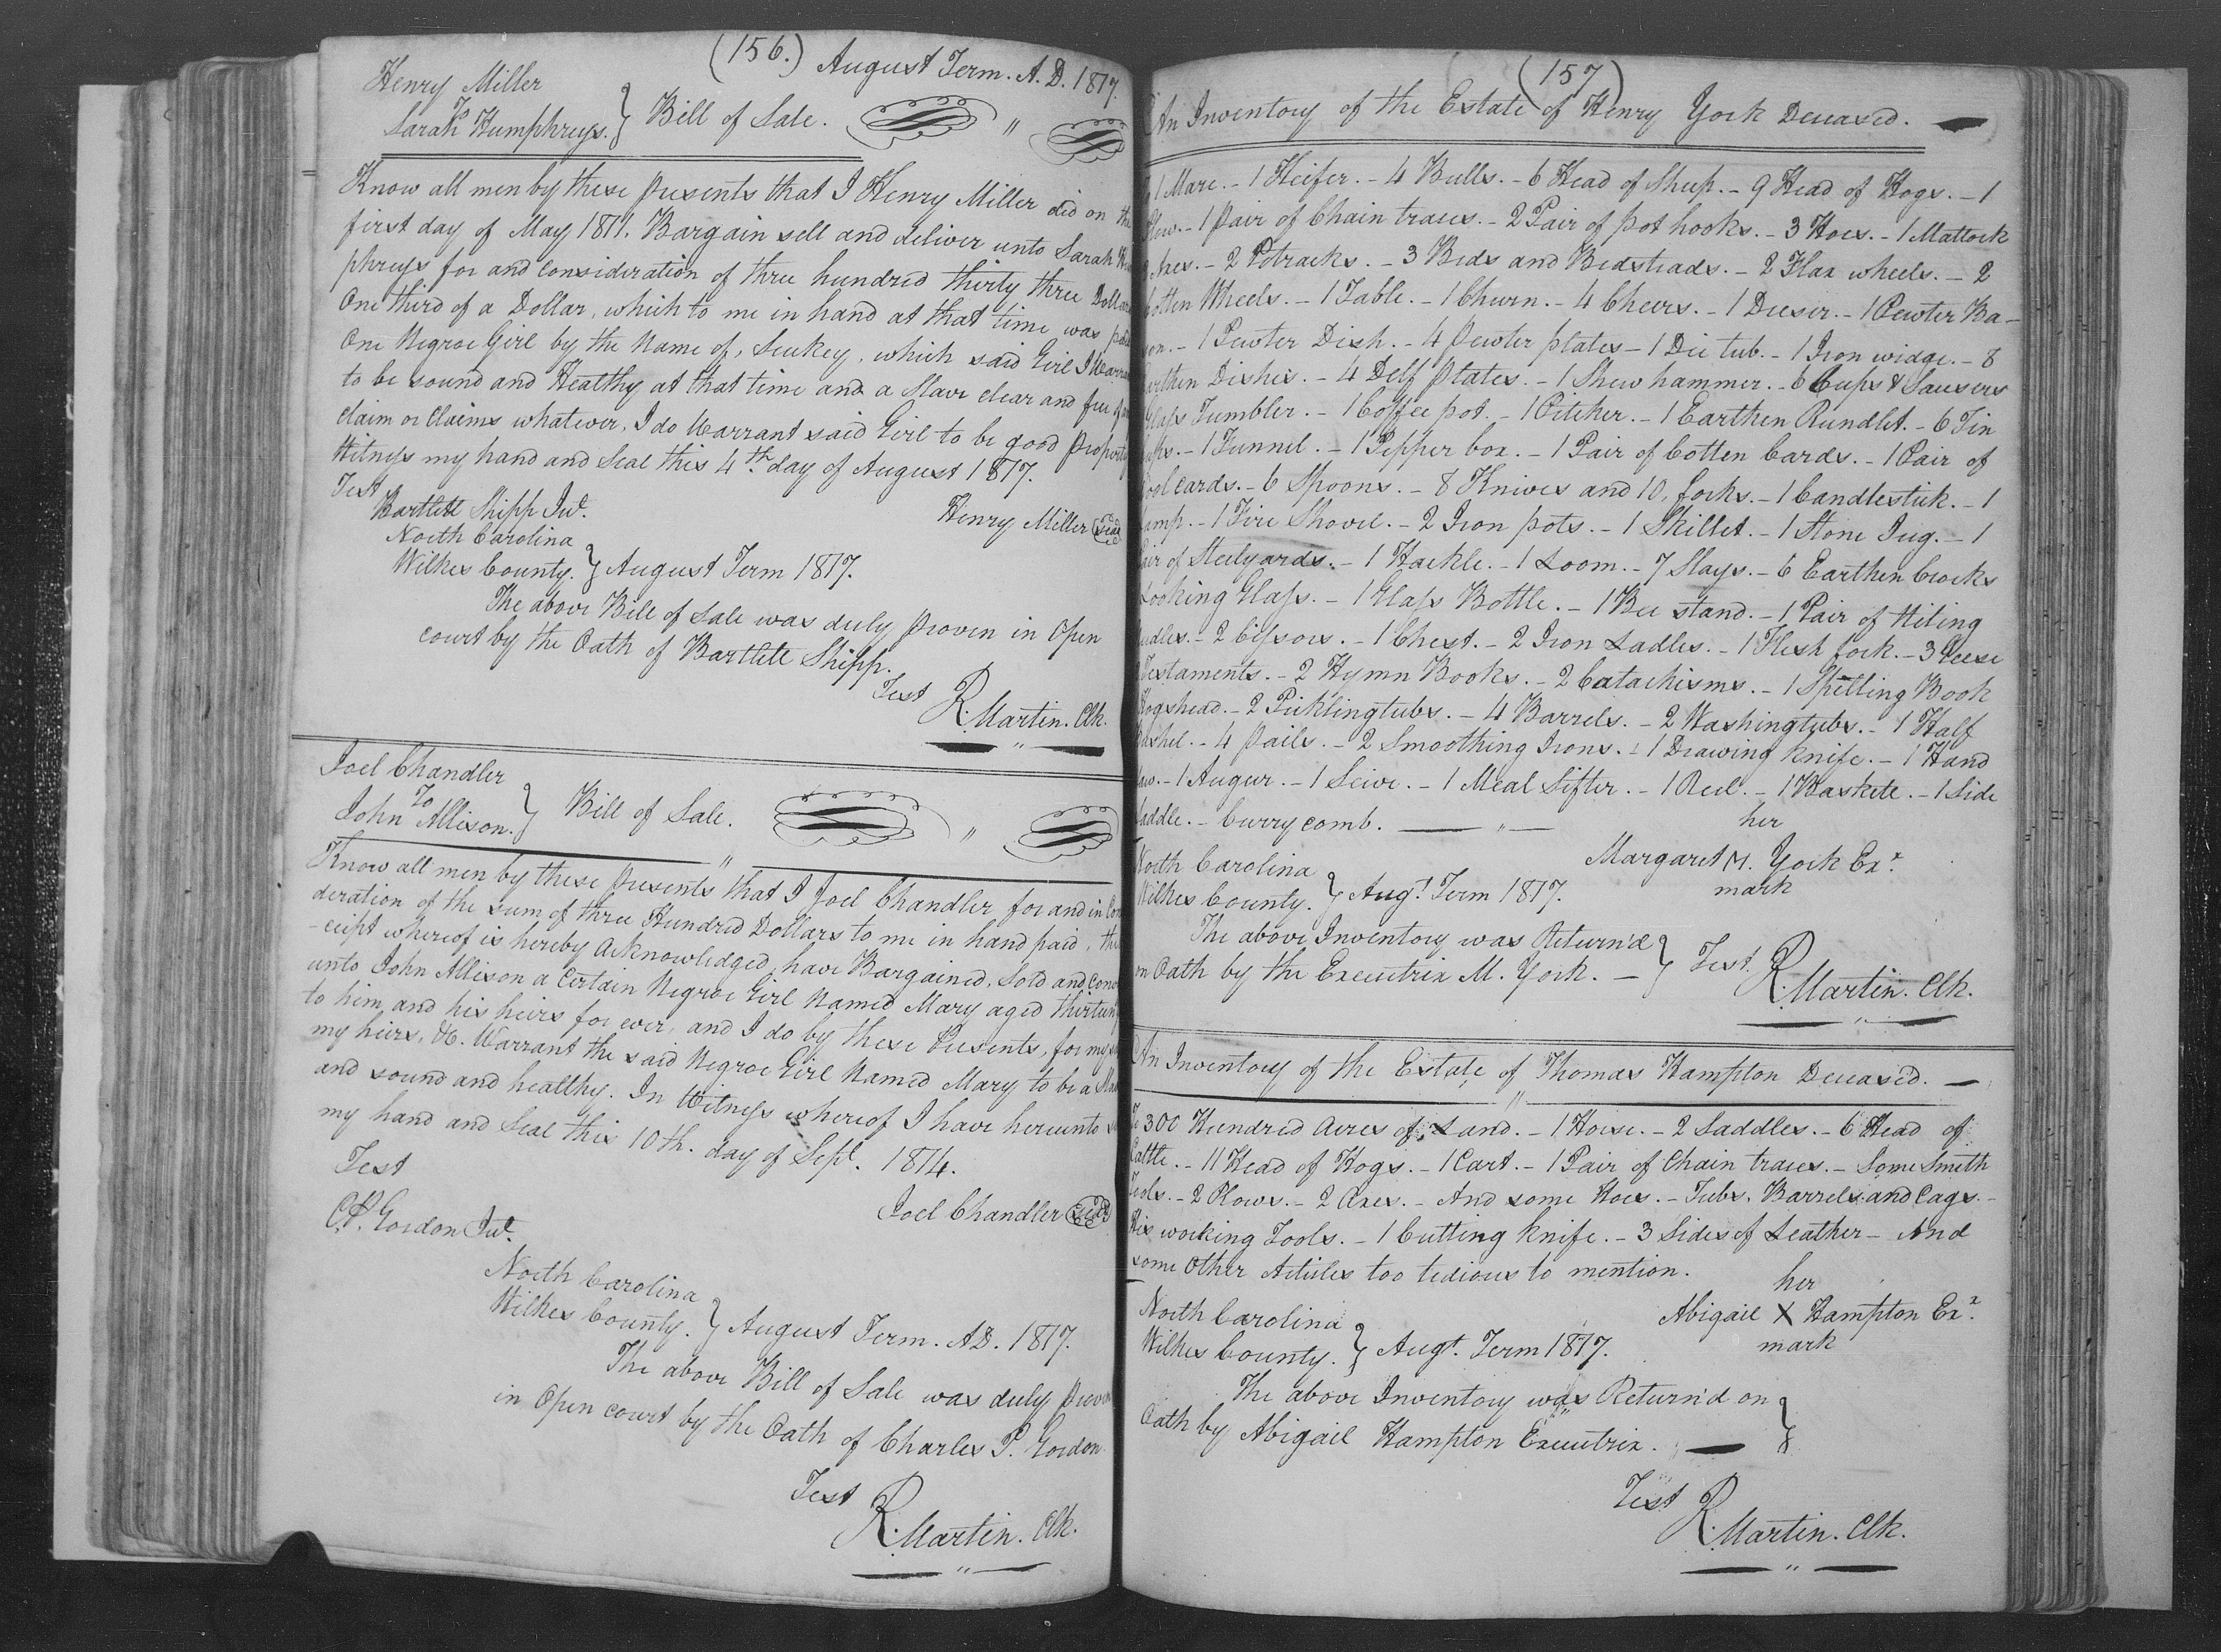 (156.) August Term. A. D. 1817.
Henry Miller
To
Sarah Humphreys. } Bill of Sale. "
Know all men by these presents that I Henry Miller did on the
first day of May 1811. Bargain sell and deliver unto Sarah Hum
phreys for and Consideration of three hundred thirty three Dollars
One third of a Dollar, which to me in hand at that time was paid
One Negroe Girl by the Name of, Suckey, which said Girl I Warrant
to be sound and Healthy at that time and a Slave clear and free of any
Claim or Claims whatever, I do Warrant said Girl to be good property
Witness my hand and Seal this 4th. day of August 1817.
Test
Bartlett Shipp Jut.
Henry Miller (Seal)
North Carolina
Wilkes County. } August Term 1817.
The above Bill of Sale was duly proven in Open
court by the Oath of Bartlett Shipp.
Test
R. Martin. Clk.
Joel Chandler
To
John Allison. } Bill of Sale. "
Know all men by these presents that I Joel Chandler for and in Con
deration of the sum of three Hundred Dollars to me in hand paid, the
-ceipt whereof is hereby Acknowledged, have Bargained, Sold and Conv
unto John Allison a Certain Negroe Girl Named Mary aged thirteen
to him, and his heirs for ever, and I do by these Presents, for my
my heirs, &c. Warrant the said Negroe Girl Named Mary to be a Slave
and sound and healthy. In Witness whereof I have hereunto
my hand and Seal this 10th. day of Sept. 1814.
Test
C. P. Gordon Jut.
Joel Chandler (Seal)
North Carolina
Wilkes County. } August Term. A D. 1817.
The above Bill of Sale was duly prov
in Open court by the Oath of Charles P. Gordon
Test
R. Martin. Clk.
(157)
An Inventory of the Estate of Henry York Deceased.
1 Mare. - 1 Heifer. - 4 Bulls. - 6 Head of Sheep. - 9 Head of Hogs. - 1
Plow. - 1 pair of Chain traces. - 2 Pair of pot hooks. - 3 Hoes. - 1 Mattock
2 Axes. - 2 Potracks. - 3 Beds and Bedsteads. - 2 Flax wheels. - 2
Cotten Wheels. - 1 Table. - 1 Churn. - 4 Cheers. - 1 Dresser. - 1 Pewter Ba-
son. - 1 Pewter Dish. - 4 pewter plates - 1 Die tub. - 1 Iron widge. - 8
Earthen Dishes. - 4 Delf plates. - 1 Shew hammer. - 6 Cups & Sausers
Glass Tumbler. - 1 Coffee pot. - 1 Pitcher. - 1 Earthen Rundlet. - 6 Tin
Cups. - 1 Funnel. - 1 Pepper box. - 1 Pair of Cotten Cards. - 1 Pair of
Wool cards. - 6 Spoons. - 8 Knives and 10, forks. - 1 Candlestick. - 1
Lamp. - 1 Fire Shovel. - 2 Iron pots. - 1 Skillet. - 1 Stone Jug. - 1
Pair of Steelyards. - 1 Hackle. - 1 Loom. - 7 Slays. - 6 Earthen Crocks
Looking Glass. - 1 Glass Bottle. - 1 Bee stand. - 1 Pair of Niting
Needles. - 2 Cissors. - 1 Chest. - 2 Iron Ladles. - 1 Flesh fork. - 3 Geese
Testaments. - 2 Hymn Books. - 2 Catachisms. - 1 Spelling Book
Hogshead. - 2 Picklingtubs. - 4 Barrels. - 2 Washingtubs. - 1 Half
Bushel. - 4 pails. - 2 Smoothing Irons. - 1 Drawing Knife. - 1 Hand
saw. - 1 Augur. - 1 Seive. - 1 Meal Sifter. - 1 Reel. - 1 Baskete. - 1 Side
saddle. - Curry comb.
her
Margaret M. York Exr.
mark
North Carolina
Wilkes County. } Augt. Term 1817.
The above Inventory was Return'd
on Oath by the Executrix M. York. - } Test. R. Martin. Clk.
An Inventory of the Estate of Thomas Hampton Deceas'd.
To 300 Hundred Acres of Land. - 1 Horse. - 2 Saddles. - 6 Head of
Cattle. - 11 Head of Hogs. - 1 Cart. - 1 Pair of Chain traces. - Some Smith
Tools. - 2 Plows. - 2 Axes. - And some Hoes. - Tubs, Barrels and Cags. -
His working Tools. - 1 Cutting Knife. - 3 Sides of Leather - And
some Other Articles too tedious to mention.
her
Abigail X Hampton Exr.
mark
North Carolina
Wilkes County. } Augt. Term 1817.
The above Inventory was Return'd on
Oath by Abigail Hampton Executrix. }
Test
R. Martin. Clk.